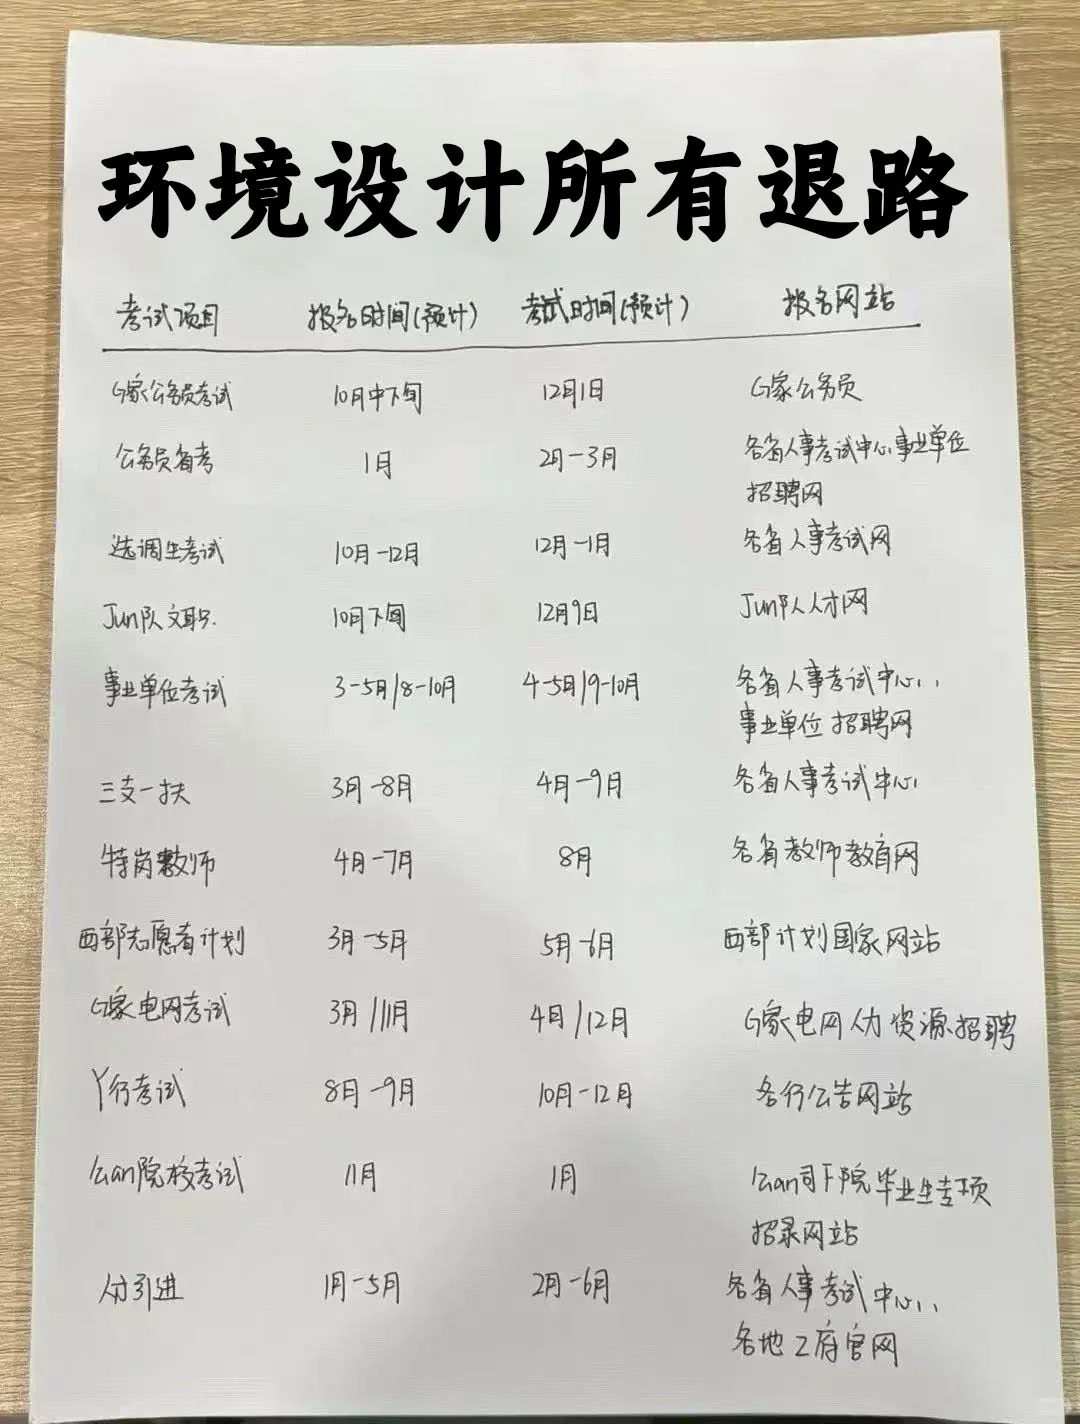 环境设计所有退路
考试项目 报名时间(预计) 考试时间(预计) 报名网站
G家公务员考试 10月中下旬 12月1日 G家公务员
公务员省考 1月 2月-3月 各省人事考试中心事业单位
招聘网
选调生考试 10月-12月 12月-1月 各省人事考试网
Jun队文职. 10月下旬 12月9日 Jun队人才网
事业单位考试 3-5月/8-10月 4-5月/9-10月 各省人事考试中心、、
事业单位招聘网
三支一扶 3月-8月 4月-9月 各省人事考试中心
特岗教师 4月-7月 8月 各省教师教育网
西部志愿者计划 3月-5月 5月-6月 西部计划国家网站
G家电网考试 3月/11月 4月/12月 G家电网人力资源招聘
丫行考试 8月-9月 10月-12月 各行公告网站
公an院校考试 11月 1月 公an司下院毕业生专项
招录网站
人才引进 1月-5月 2月-6月 各省人事考试中心、、
各地Z府官网